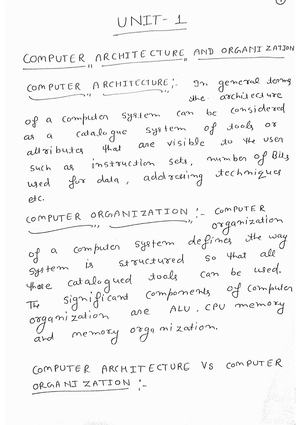 UNIT-1
COMPUTER ARCHITECTURE AND ORGANIZATION
COMPUTER ARCHITECTURE:- In general terms
the architecture
of a computer system can be considered
as a catalogue system of tools or
attributes that are visible to the user
such as instruction sets, number of Bits
used for data, addressing techniques
etc.
COMPUTER ORGANIZATION:- COMPUTER
organization
of a computer system defines the way
system is structured so that all
those catalogued tools can be used.
The significant components of Computer
organization are ALU, CPU memory
and memory organization.
COMPUTER ARCHITECTURE VS COMPUTER
ORGANIZATION:-